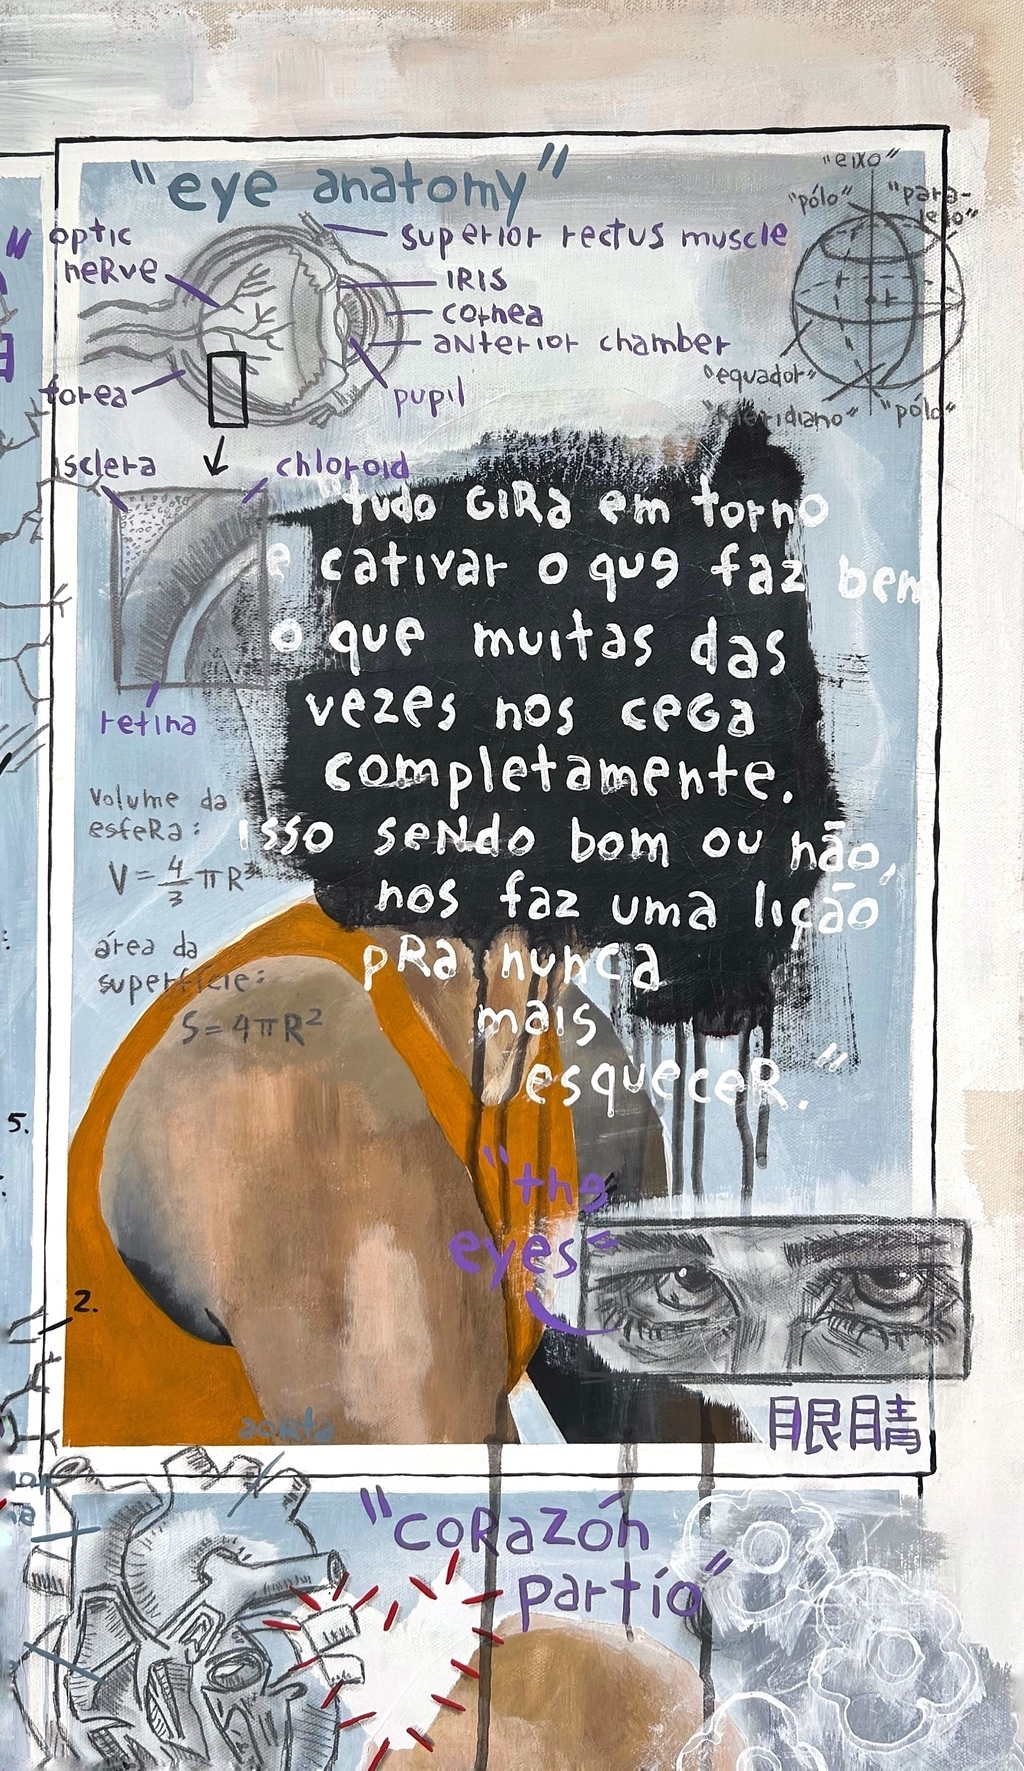 "eye anatomy"
"eixo"
"pólo"
"para-
lelo"
optic
nerve
superior rectus muscle
IRIS
cornea
anterior chamber
pupil
forea
"equador"
"meridiano"
"pólo"
sclera
chloroid
retina
tudo GIRa em torno
e cativar o que faz bem
o que muitas das
vezes nos ceGa
completamente.
isso seNdo bom ou não,
nos faz uma lição
pRa nunca
mais
esqueceR."
volume da
esfeRa:
V = 4/3 π R³
área da
superfície:
S = 4πR²
5.
"the
eyes"
2.
眼睛
aorta
"coRazón
partío"